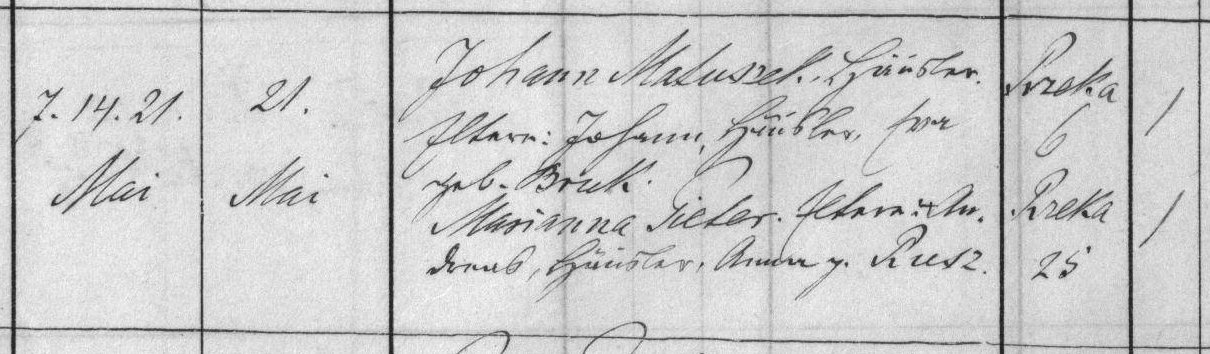 7. 14. 21.
Mai
21.
Mai
Johann Matuszek. Häusler.
Eltern: Johann, Häusler, Eva
geb. Bruk.
Marianna Pieter. Eltern: An-
dreas, Häusler, Anna g. Rusz.
Rzeka
6
Rzeka
25
/
/